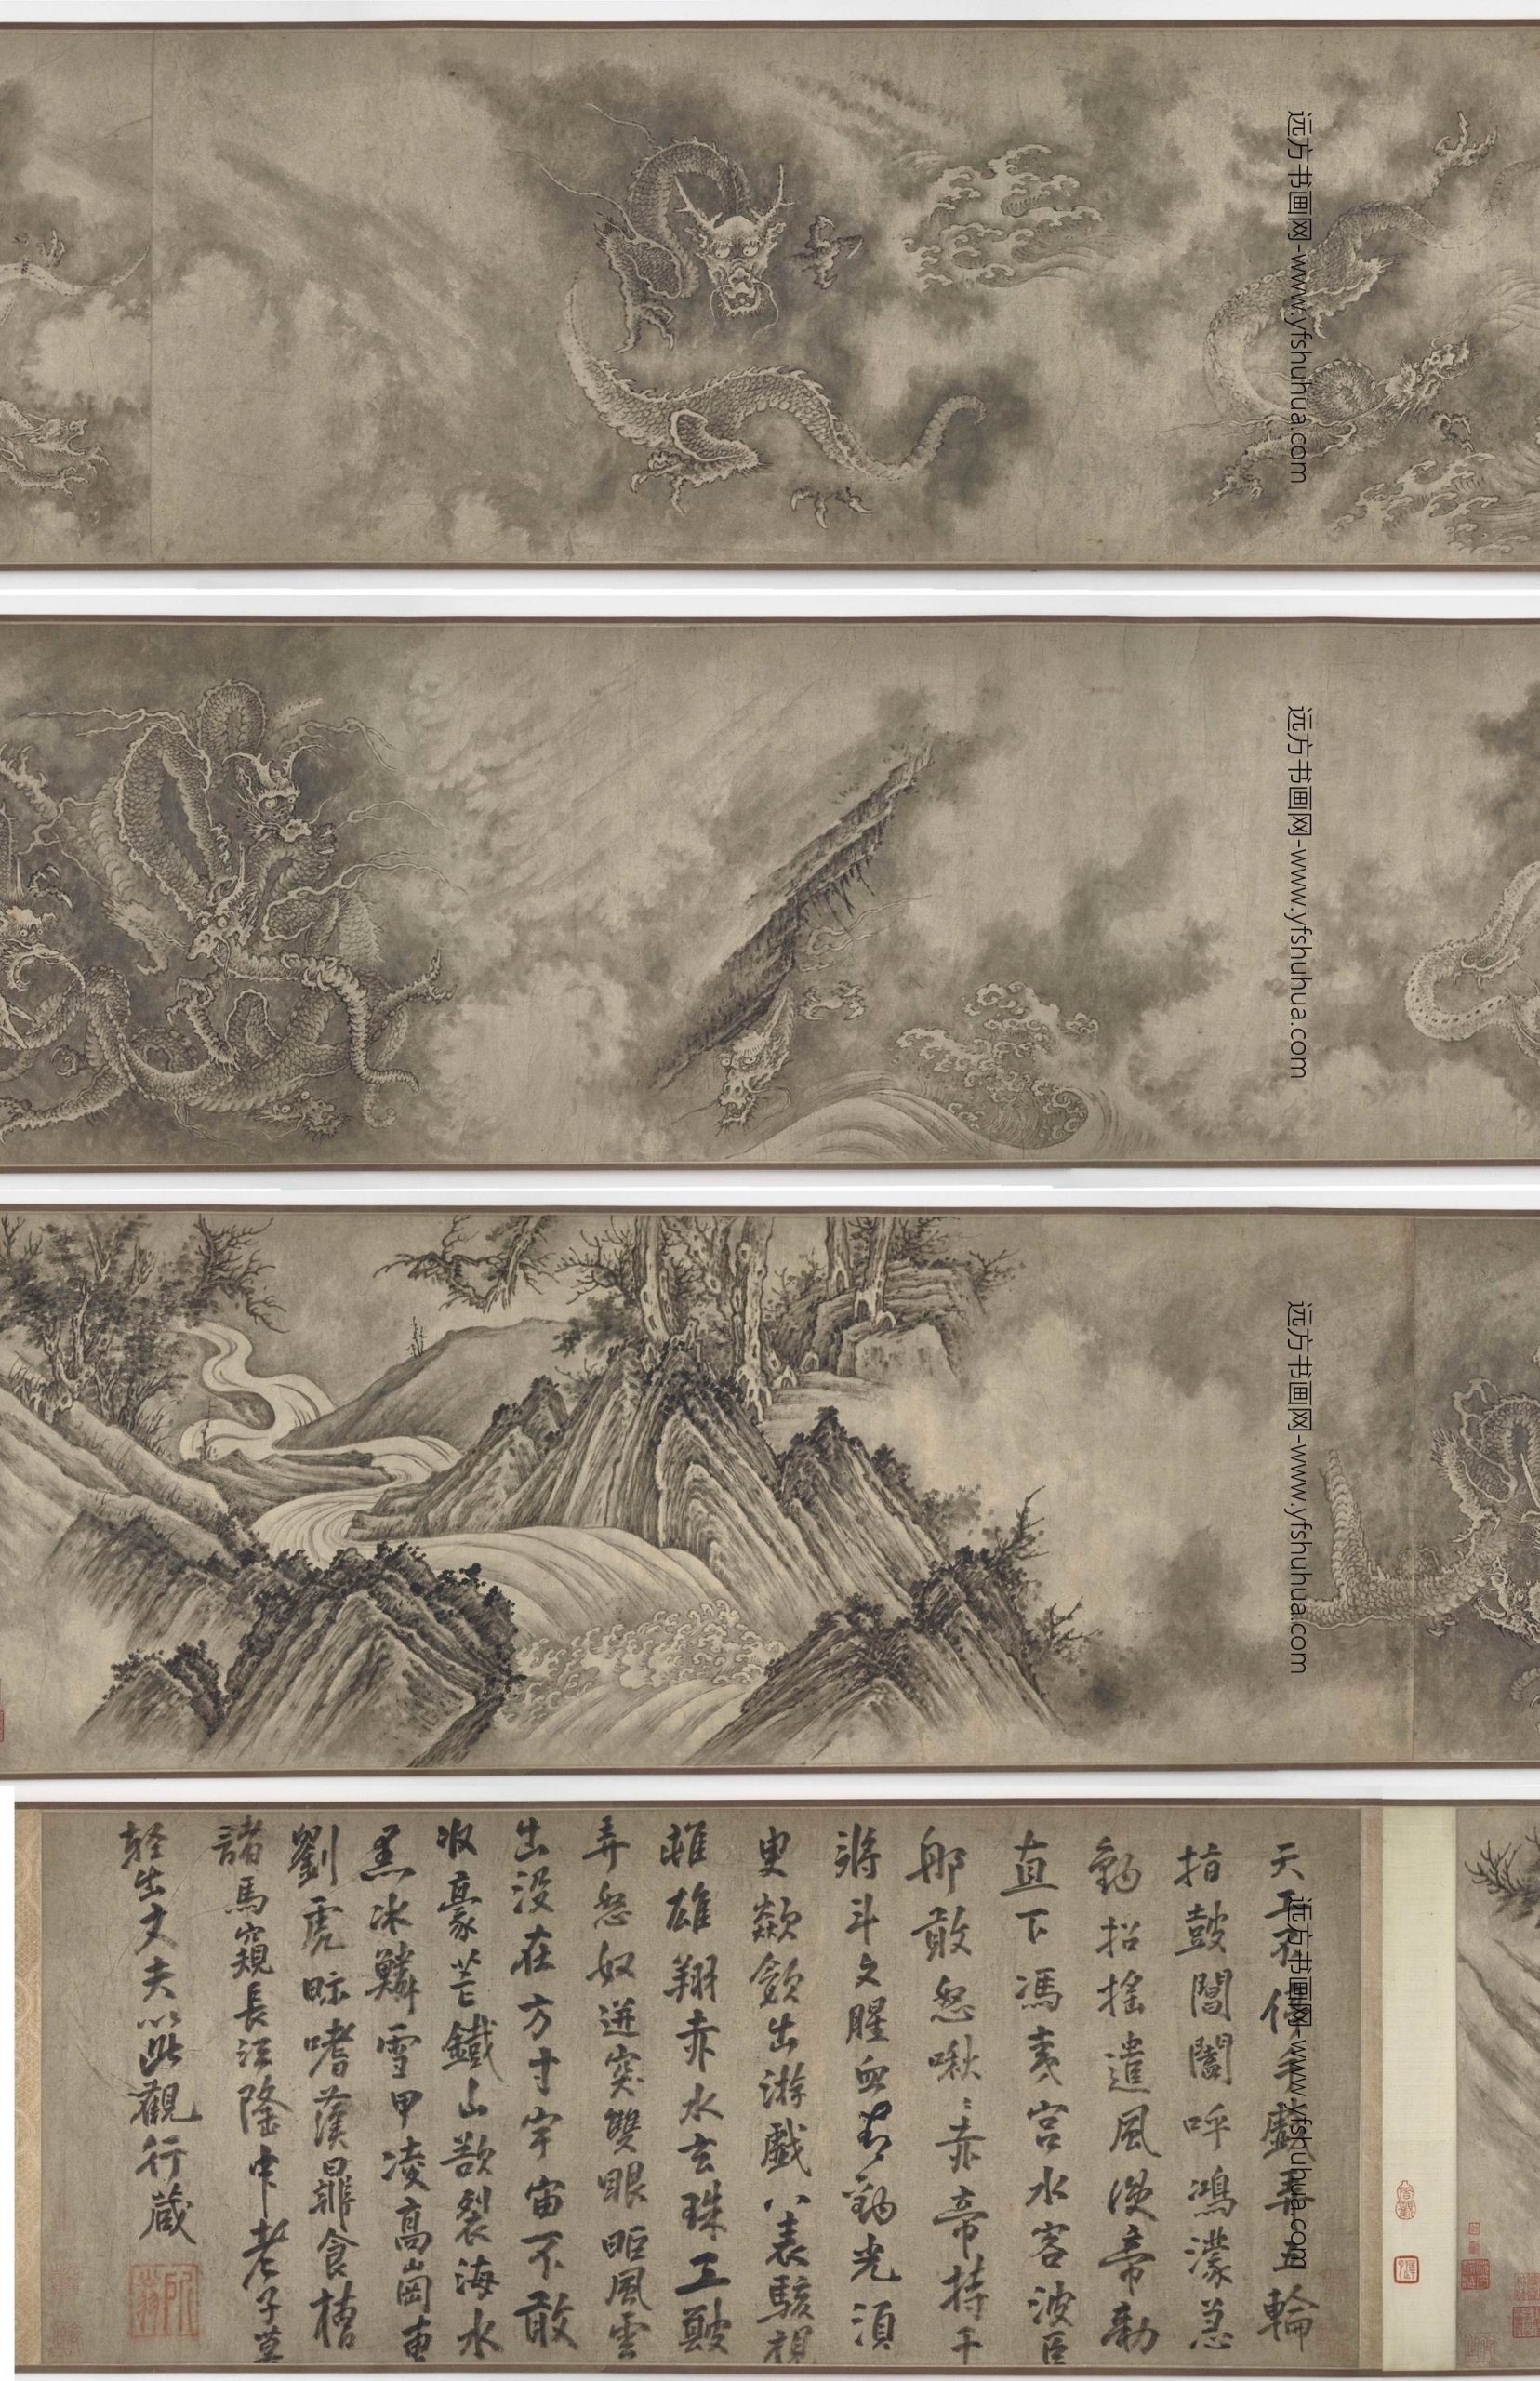 远方书画网-www.yfshuhua.com
远方书画网-www.yfshuhua.com
远方书画网-www.yfshuhua.com
远方书画网-www.yfshuhua.com
天手戲弄五輪
指鼓闔闢呼鴻濛急
招搖遣風後帝勅
直下馮夷宮水客波臣
那敢怒啾〻赤帝持干
將斗文腥血動光須
臾歘出游戲八表駭視
雌雄翔赤水玄珠工
弄怒奴迸突雙眼眶風雲
出沒在方寸宇宙不敢
收豪芒鐵山裂海水
冰鱗雪甲凌高崗東
劉虎嗜食槽
諸馬窺長江隆中老子莫
輕出丈夫以此觀行藏
所翁